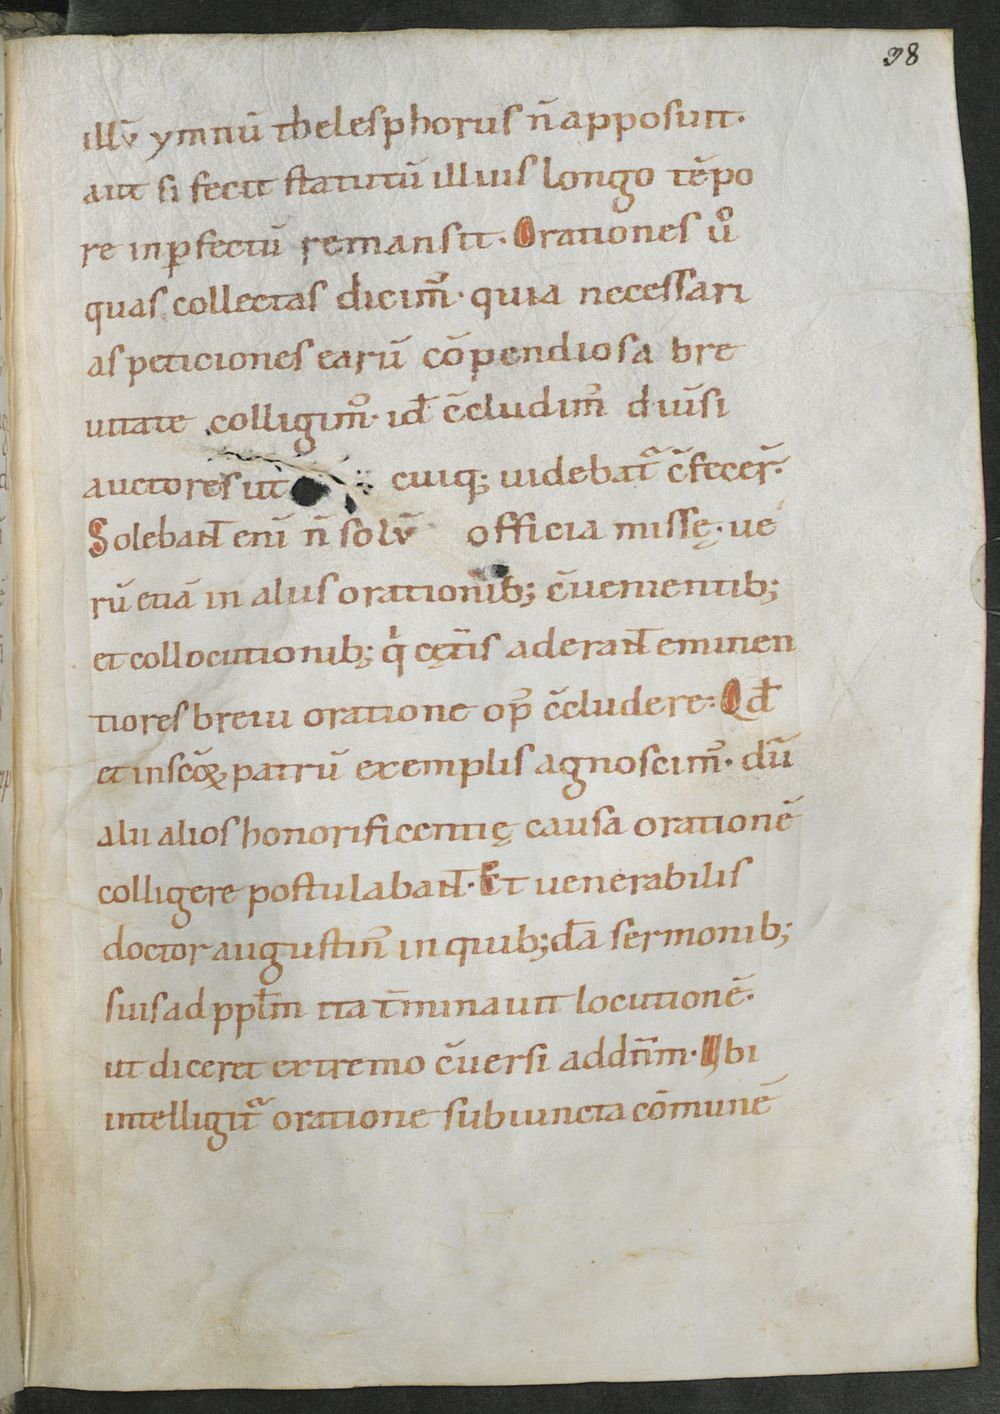 38
illū ymnū thelesphorus n̄ apposuit.
aut si fecit statutū illius longo tēpo
re inꝑfectū remansit. Orationes ủ
quas collectas dicim᷒. quia necessari
as peticiones earū cōpendiosa bre
uitate colligim᷒. id̄ c̄cludim᷒ diūsi
auctores ut cuiq; uidebat᷑ c̄fecer̄.
Solebant eni̅ n̄ solū officia missę. ue
rū etiā in aliis orationib; c̄uenientib;
et collocutionib; qͥ cęt̄is aderant eminen
tiores breui oratione op᷒ c̄cludere. Qd̄
et in sc̄oꝝ patrū exemplis agnoscim᷒. dū
alii alios honorificentię causa orationē
colligere postulabant. Et uenerabilis
doctor augustin᷒ in quib;dā sermonib;
suis ad ppl̄m ita t̄minauit locutionē.
ut diceret extremo c̄uersi ad dn̄m. Ubi
intelligit᷑ oratione subiuncta cōmunē